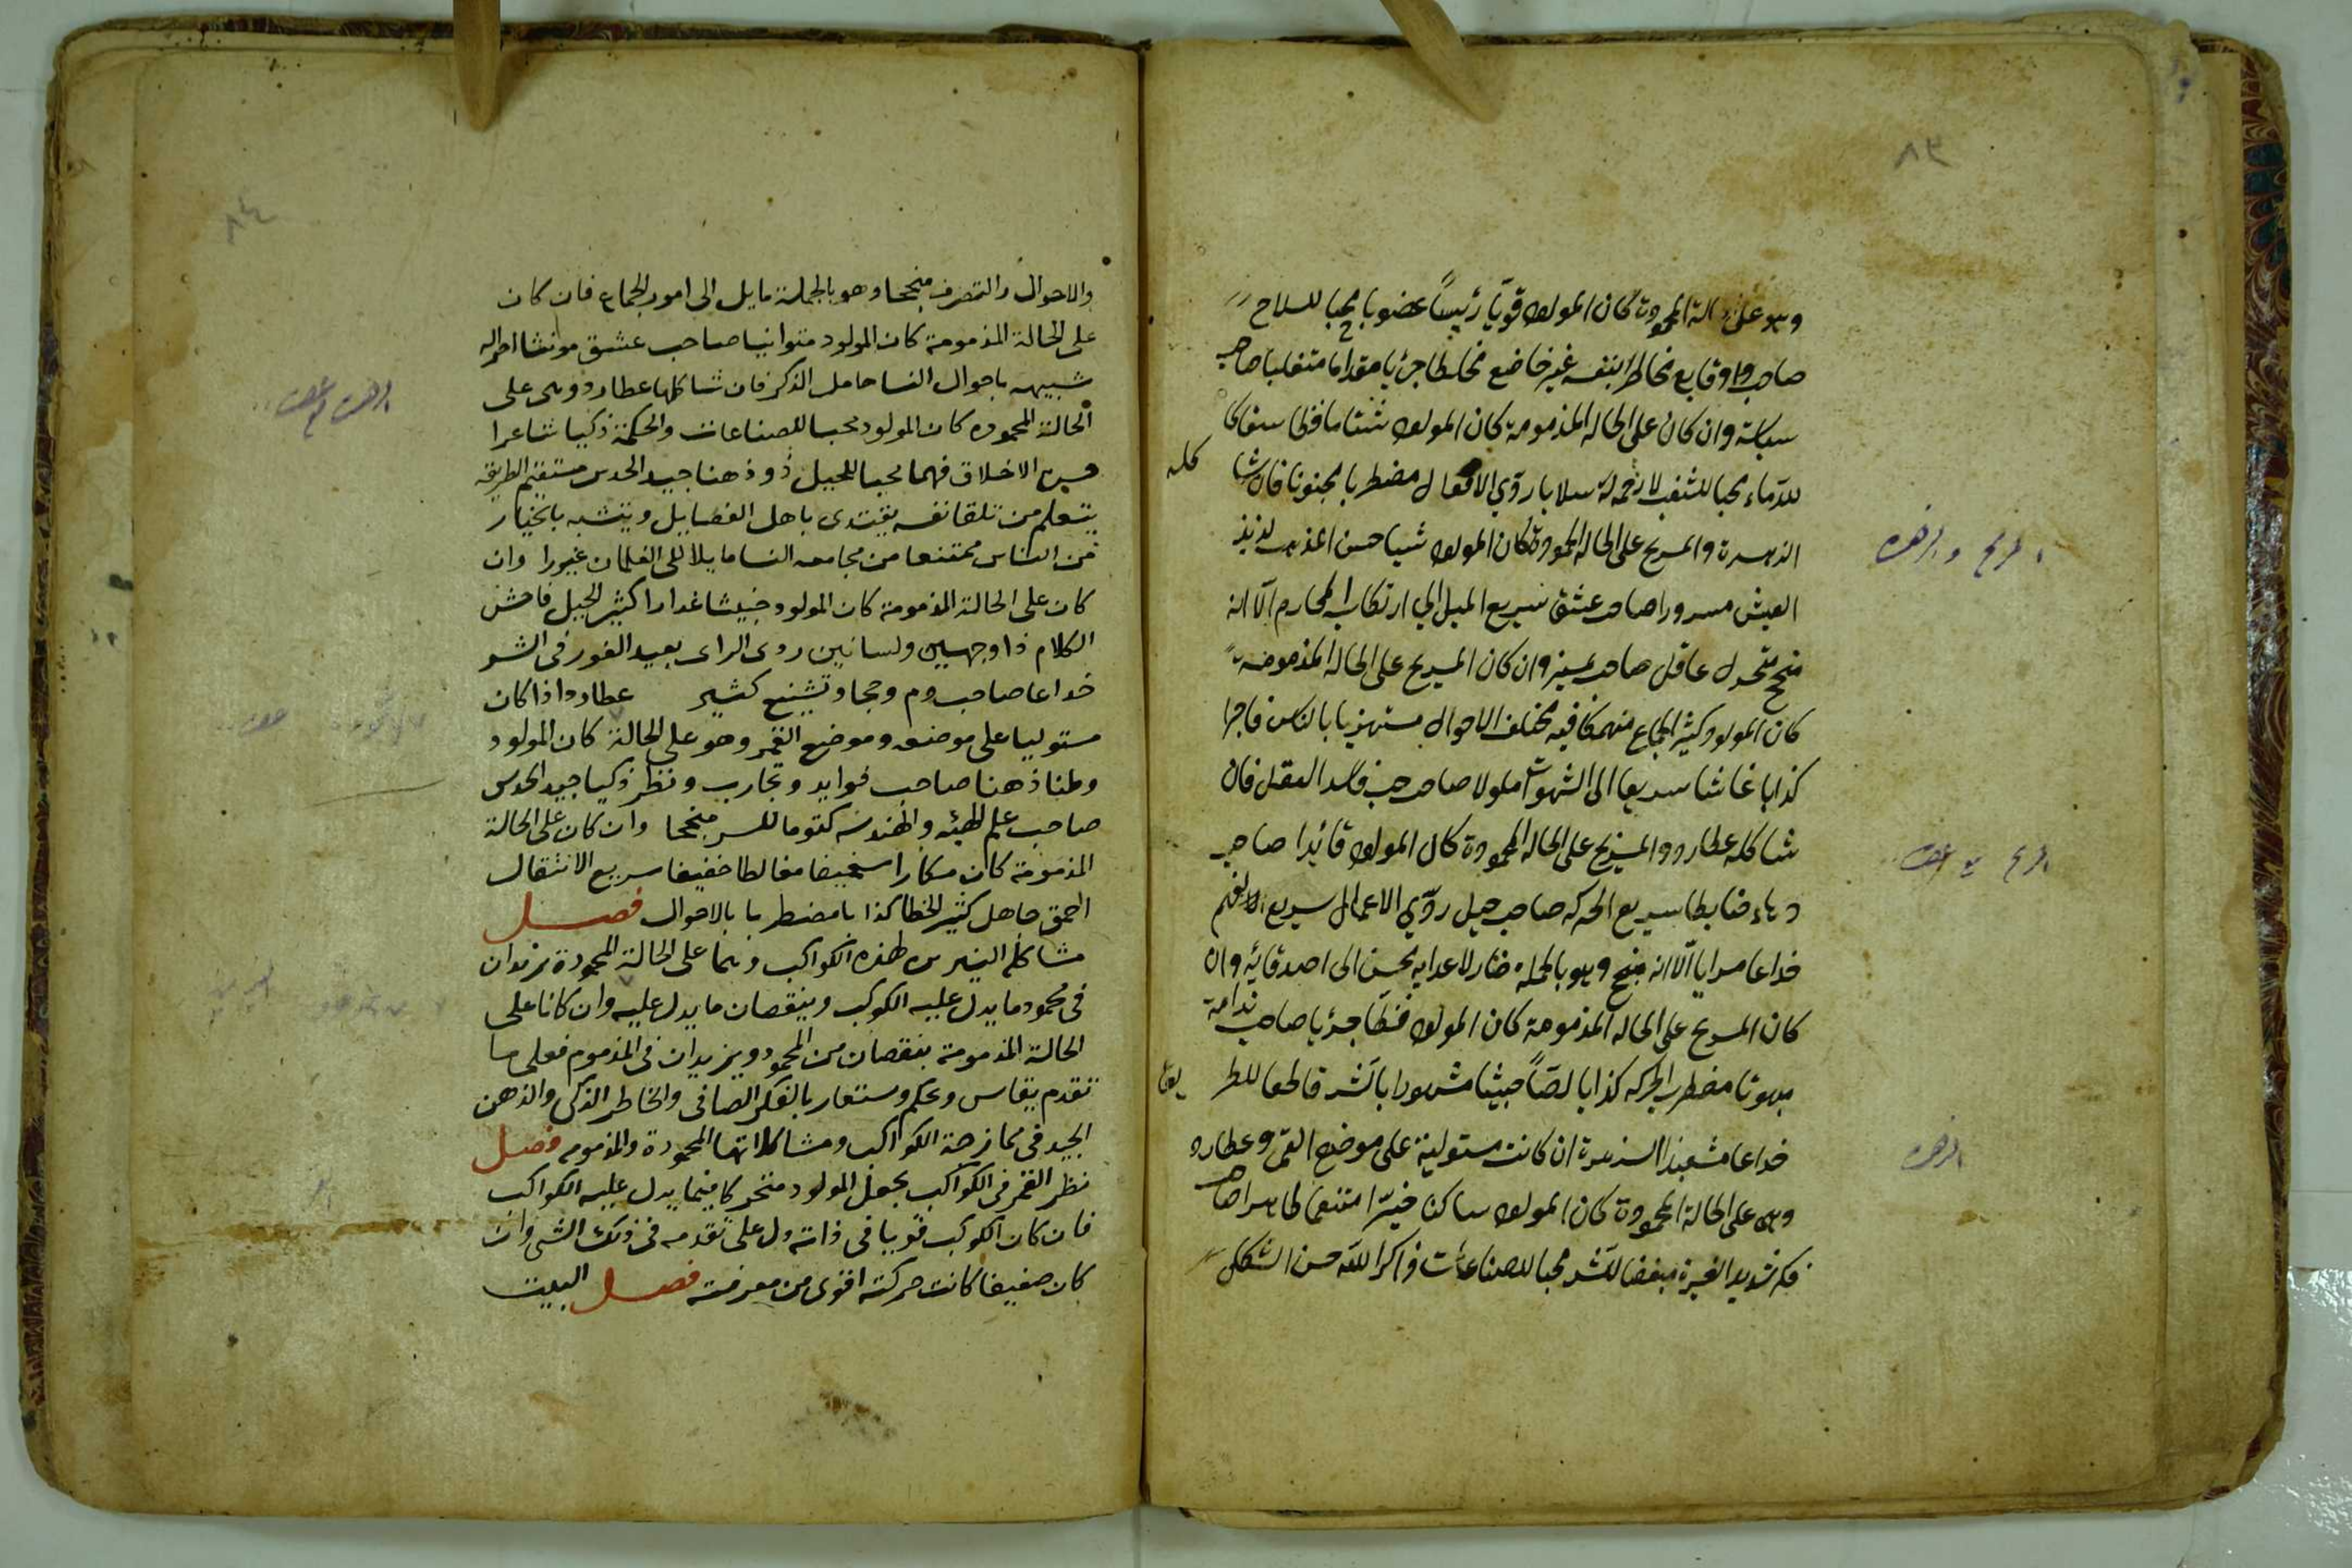 ٨٣
وهو على الحالة المحمودة كان المولود قويّا رئيساً غضوبا محبا للسلاح
صاحب وقايع مخاطرا بنفسه غير خاضع مخلطا جرئيا مقداما متغلبا صاحب
سياسة وان كان على الحالة المذمومة كان المولود شتاما فظا سفاكا
للدماء محبا للشغب لا رحمة له سلابا ردي الافعال مضطربا مجنونا فان شا
كله
الزهرة والمريخ على الحاله المحمودة كان المولود حسن المذهب لذيذ
المريخ والزهره
العيش مسرورا صاحب عشق سريع الميل الي ارتكاب المحارم الّا انه
منجح متحول عاقل صاحب تمييز وان كان المريخ على الحالة المذمومة
كان المولود كثير الجماع منهمكا فيه مختلف الاحوال مستهزيا بالناس فاجرا
كذابا غاشا سريعا الى الشهوات ملولا صاحب فاسد العقل فان
شاكله عطارد والمريخ على الحاله المحمودة كان المولود قائدا صاحب
المريخ مع عطارد
دهاء ضابطا سريع الحركه صاحب حيل ردّي الاعمال سريع الفهم
خداعا مرايا الّا انه منجح وهو بالجمله ضار لاعدايه محسن الى اصدقائه وان
كان المريخ على الحاله المذمومة كان المولود فظا جرئيا صاحب ندامة
مبهوتا مضطرب الحركه كذابا لصّاً خبيثا مشهورا بالشر قاطعا للطر
يق
خداعا مشعبذا الزهرة ان كانت مستولية على موضع القمر وعطارد
الزهره
وهى على الحالة المحمودة كان المولود ساكنا خيّرا متنعما طاهرا صاحب
فكر شديد الغيرة مبغضا للشر محبا للصناعات ذاكرا للّه حسن الشكل
٨٤
والاحوال والتصرف منجحا وهو بالجملة مايل الى امور الجماع فان كان
على الحالة المذمومة كان المولود متوانيا صاحب عشق مونثا احواله
شبيهه باحوال النسا حامل الذكر فان شاكلها عطارد وهى على
الزهره مع عطارد
الحالة المحموده كان المولود محبا للصناعات والحكمة ذكيا شاعرا
حسن الاخلاق فهما محبا للجميل ذو ذهنا جيد الحدس مستقيم الطريقه
يتعلم من تلقا نفسه يقتدى باهل الفضايل ويتشبه بالخيار
من الناس ممتنعا من مجامعه النسا مايلا الى الغلمان غيورا وان
كان على الحالة المذمومة كان المولود خبيثا غدارا كثير الحيل فاحش
الكلام ذا وجهين ولسانين ردى الراى بعيد الغور فى الشر
خداعا صاحب وتشنيع كثير عطارد اذا كان
مستوليا على موضعه وموضع القمر وهو على الحالة كان المولود
وطنا ذهنا صاحب فوايد وتجارب ونظر ذكيا جيد الحدس
صاحب علم الهيئه والهندسه كتوما للسر منجحا وان كان على الحالة
المذمومة كان مكارا سخيفا مغالطا خفيفا سريع الانتقال
احمق جاهل كثير الخطا كذابا مضطربا بالاحوال فصل
مشاكلة النيرين لهذه الكواكب وهما على الحالة المحمودة يزيدان
فى محمود ما يدل عليه الكوكب وينقصان ما يدل عليه وان كانا على
الحالة المذمومة ينقصان من المحمود ويزيدان فى المذموم فعلى ما
تقدم يقاس ويحكم وستعار بالفكر الصافى والخاطر الذكى والذهن
الجيد فى ممازجة الكواكب ومشاكلاتها المحمودة والمذمومه فصل
نظر القمر فى الكواكب يجعل المولود متحركا فيما يدل عليه الكواكب
فان كان الكوكب قويا فى ذاته دل على تقدمه فى ذلك الشى وان
كان ضعيفا كانت حركته اقوى من معرفته فصل البيت